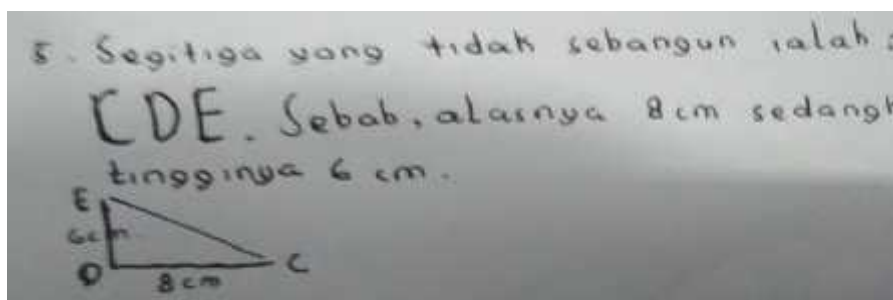 5. Segitiga yang tidak sebangun ialah:
CDE. Sebab, alasnya 8 cm
tingginya 6 cm.
E
6cm
D
8cm
C